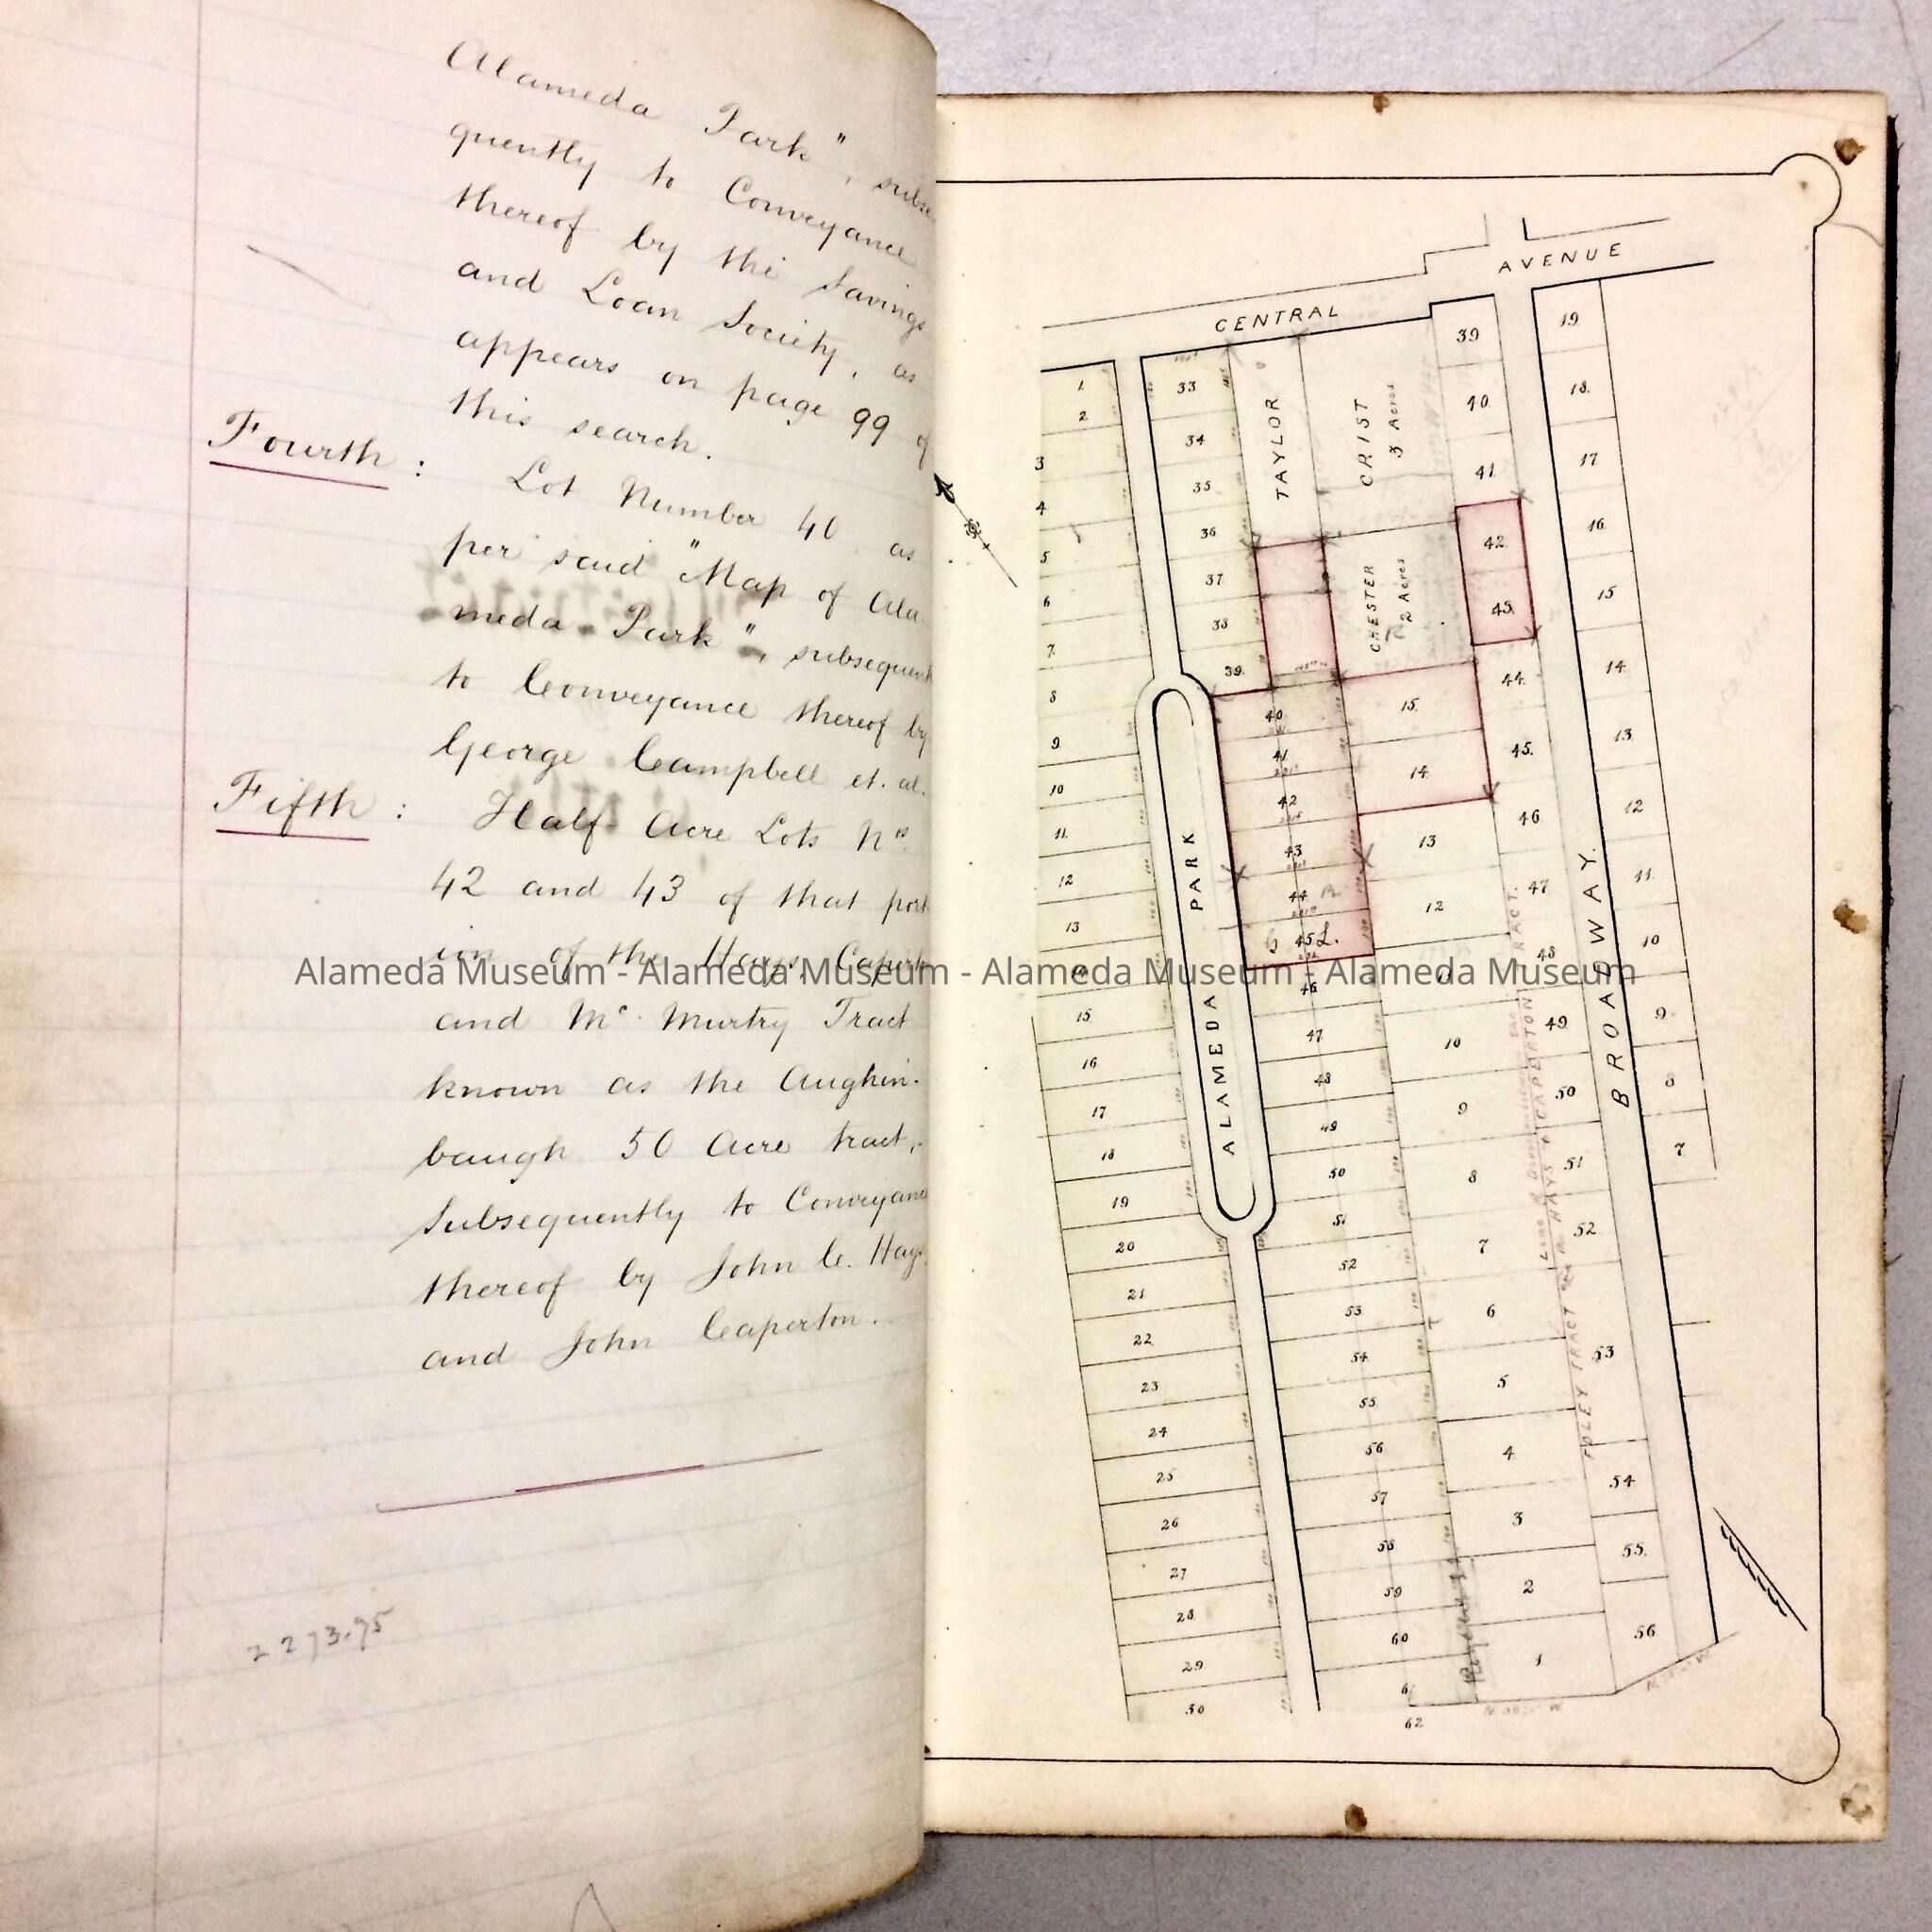 Alameda Park", subse
quently to Conveyance
thereof by the Savings
and Loan Society, as
appears on page 99 of
this search.
Fourth :
Lot Number 40 as
per said "Map of Ala
meda Park", subsequent
to Conveyance thereof by
George Campbell et. al.
Fifth :
Half Acre Lots Nos
42 and 43 of that port
ion of the Hays, Caperton
and Mc. Murtry Tract
known as the Aughin-
baugh 50 Acre tract,
Subsequently to Conveyance
thereof by John C. Hays
and John Caperton.
2273.75
Alameda Museum - Alameda Museum - Alameda Museum - Alameda Museum
CENTRAL AVENUE
TAYLOR
CRIST
3 Acres
CHESTER
2 Acres
ALAMEDA PARK
BROADWAY.
FOLEY TRACT
HAYS & CAPERTON TRACT.
1
2
3
4
5
6
7
8
9
10
11
12
13
15
16
17
18
19
20
21
22
23
24
25
26
27
28
29
30
33
34
35
36
37
38
39
40
41
42
43
44
45
46
47
48
49
50
51
52
53
54
55
56
57
58
59
60
61
62
15
14
13
12
10
9
8
7
6
5
4
3
2
1
39
40
41
42
43
44
45
46
47
48
49
50
51
52
53
54
55
56
19
18
17
16
15
14
13
12
11
10
9
8
7